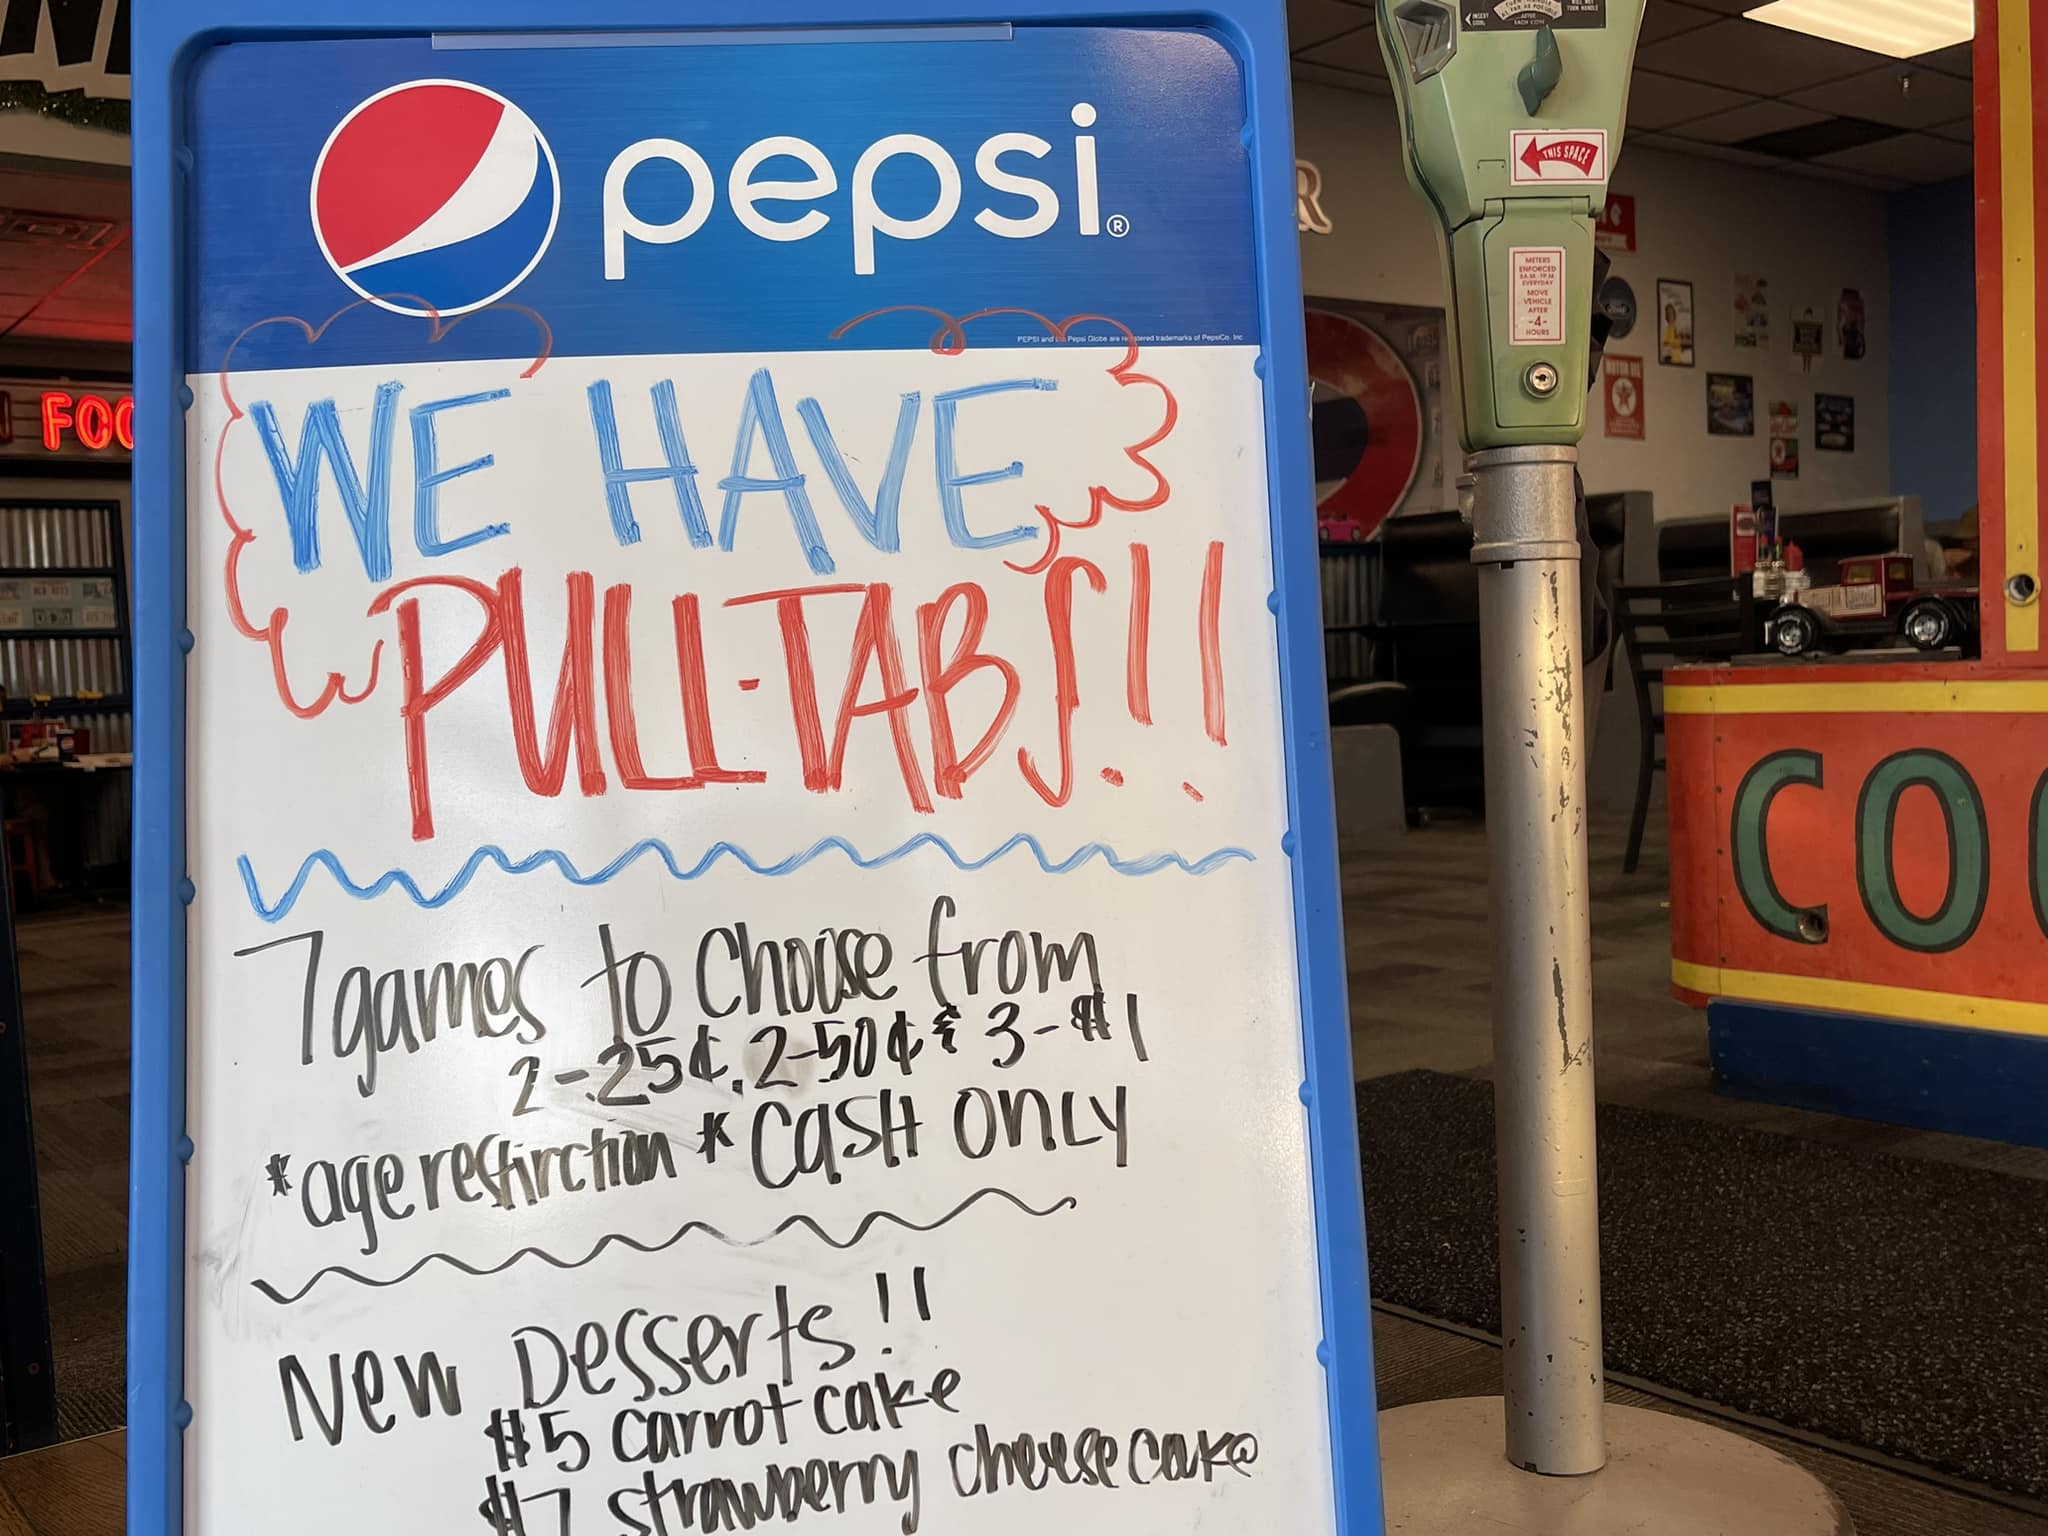 pepsi®
PEPSI and the Pepsi Globe are registered trademarks of PepsiCo, Inc
WE HAVE
PULL-TABS!!
7 games to choose from
2-.25¢, 2-50¢ & 3-$1
*age restirction * CASH ONLY
New Desserts!!
$5 carrot cake
$7 strawberry cheese cake
THIS SPACE
METERS
ENFORCED
EVERYDAY
MOVE
VEHICLE
AFTER
-4-
HOURS
FOO
MOTOR OIL
Ford
COO